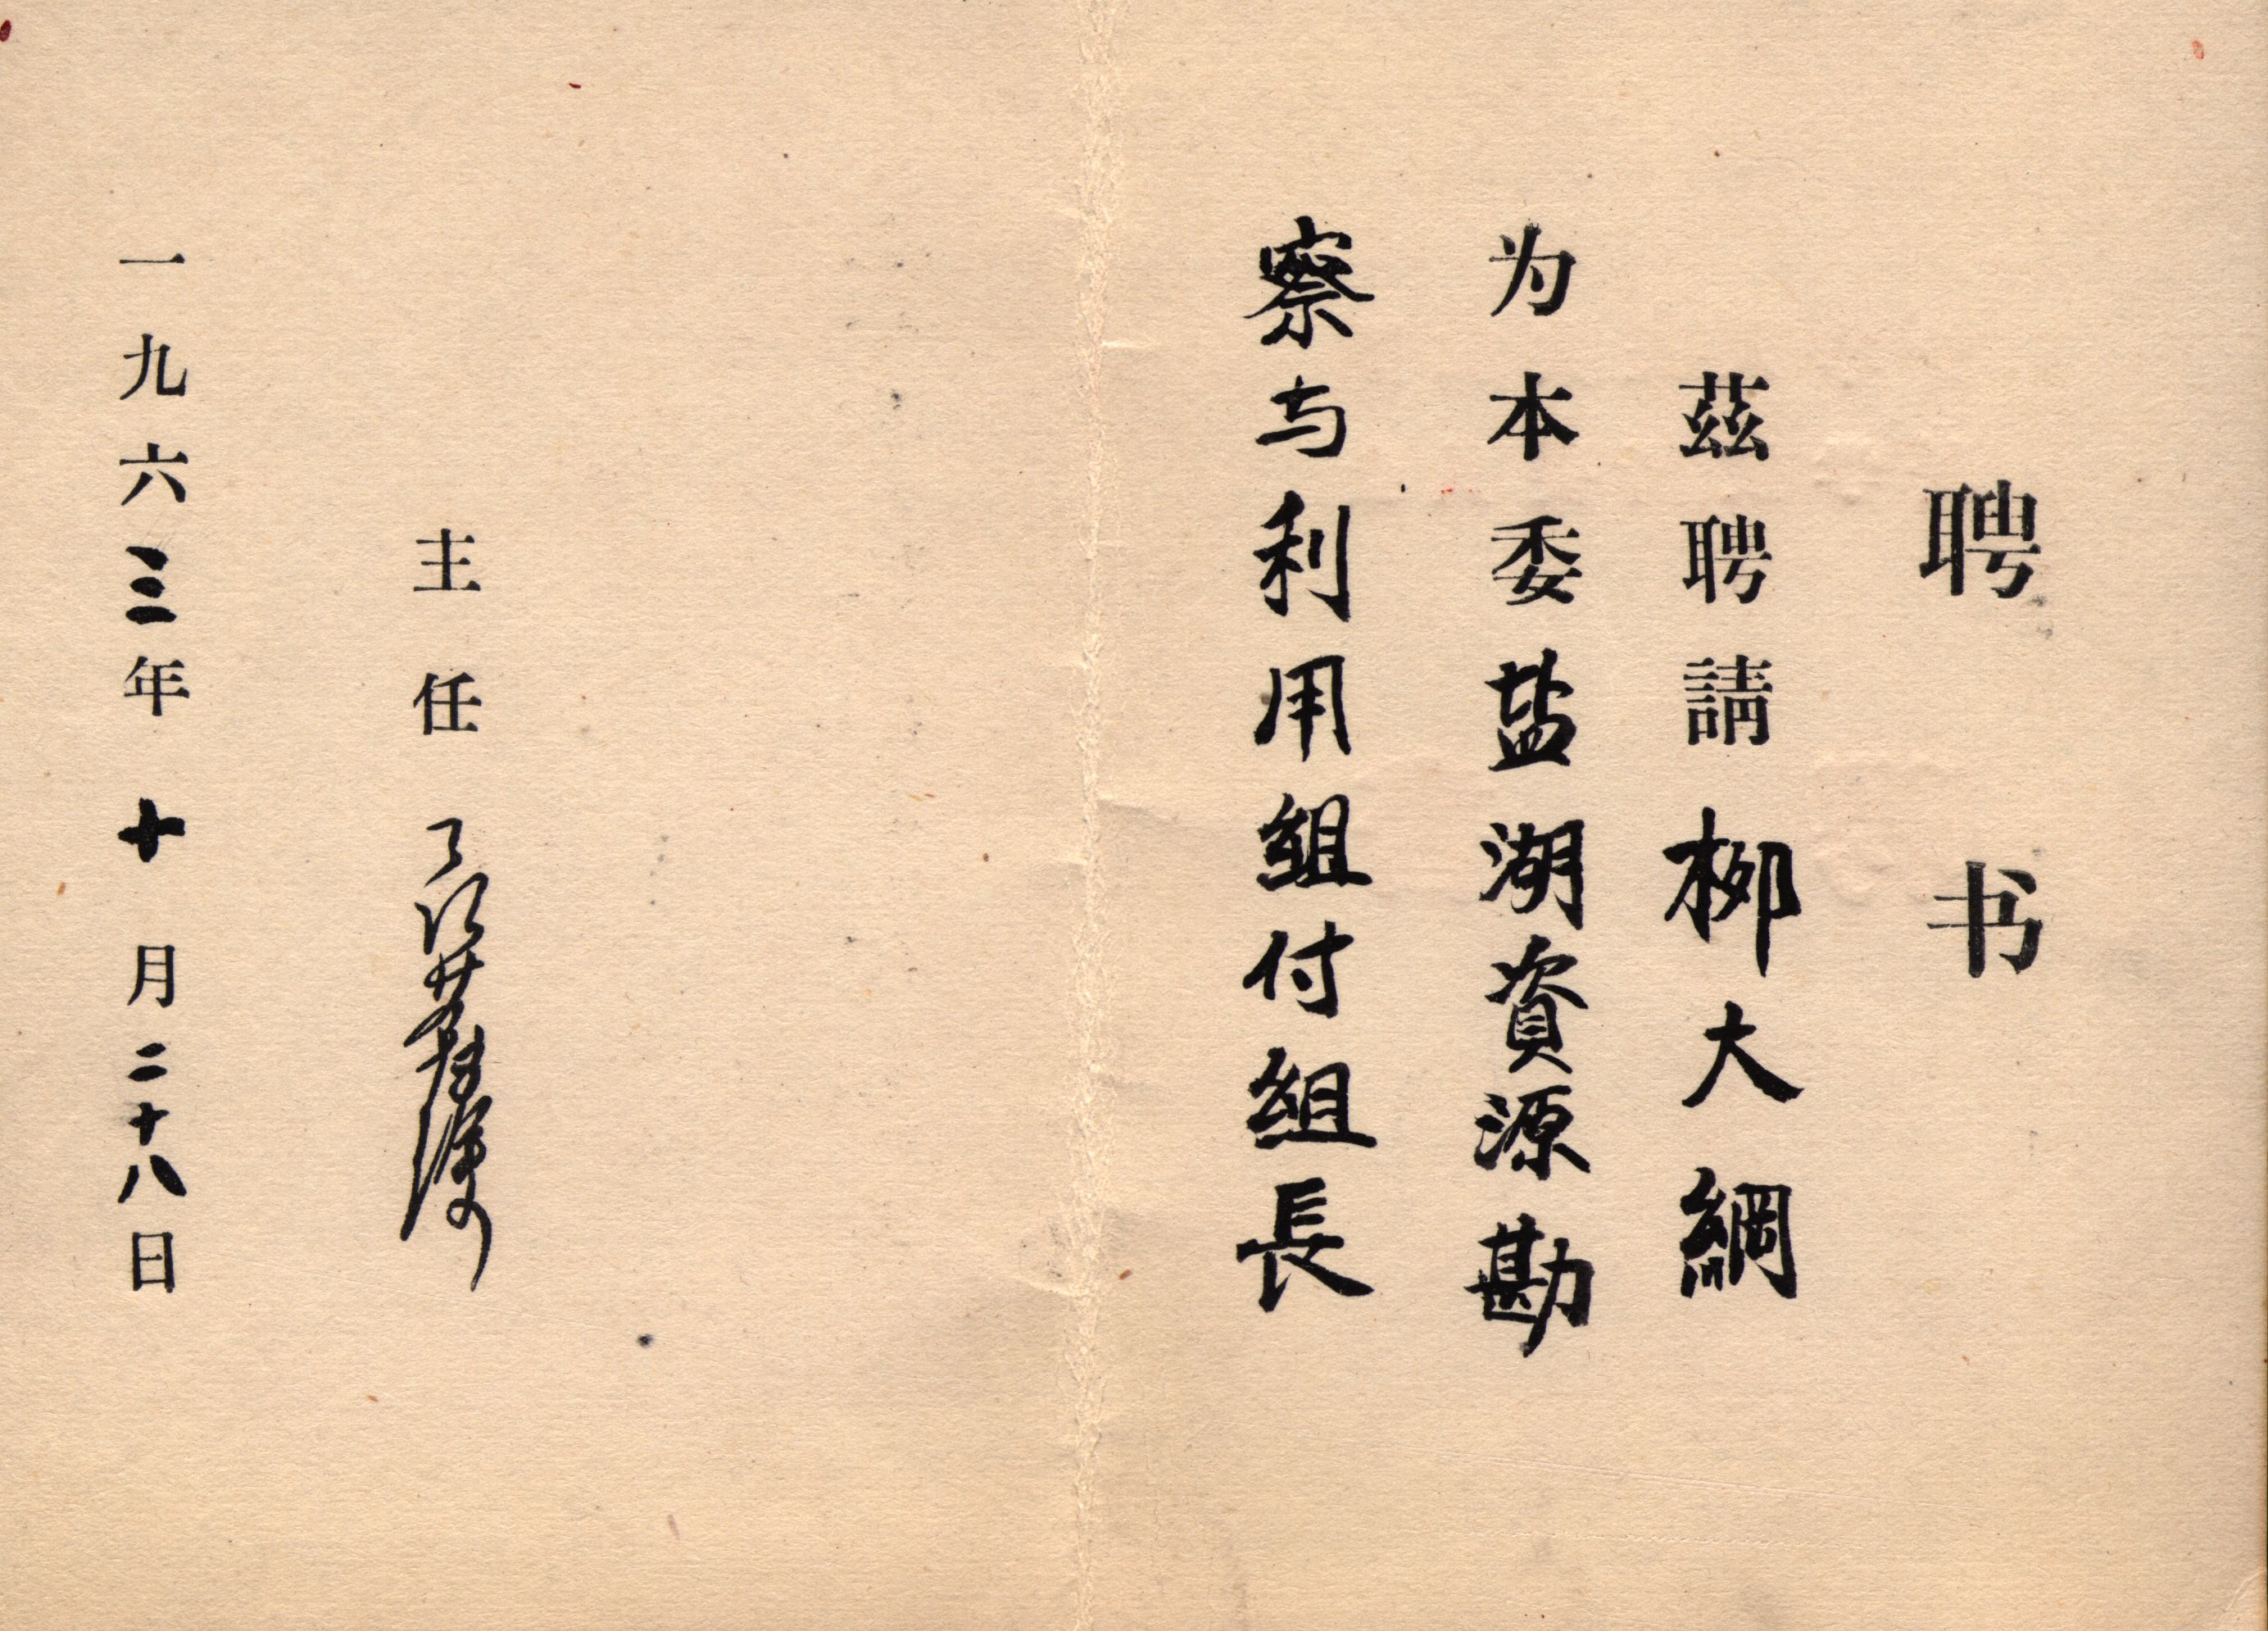 聘书
茲聘請柳大綱
为本委盐湖資源勘
察与利用组付组長
主任
一九六三年十月二十八日